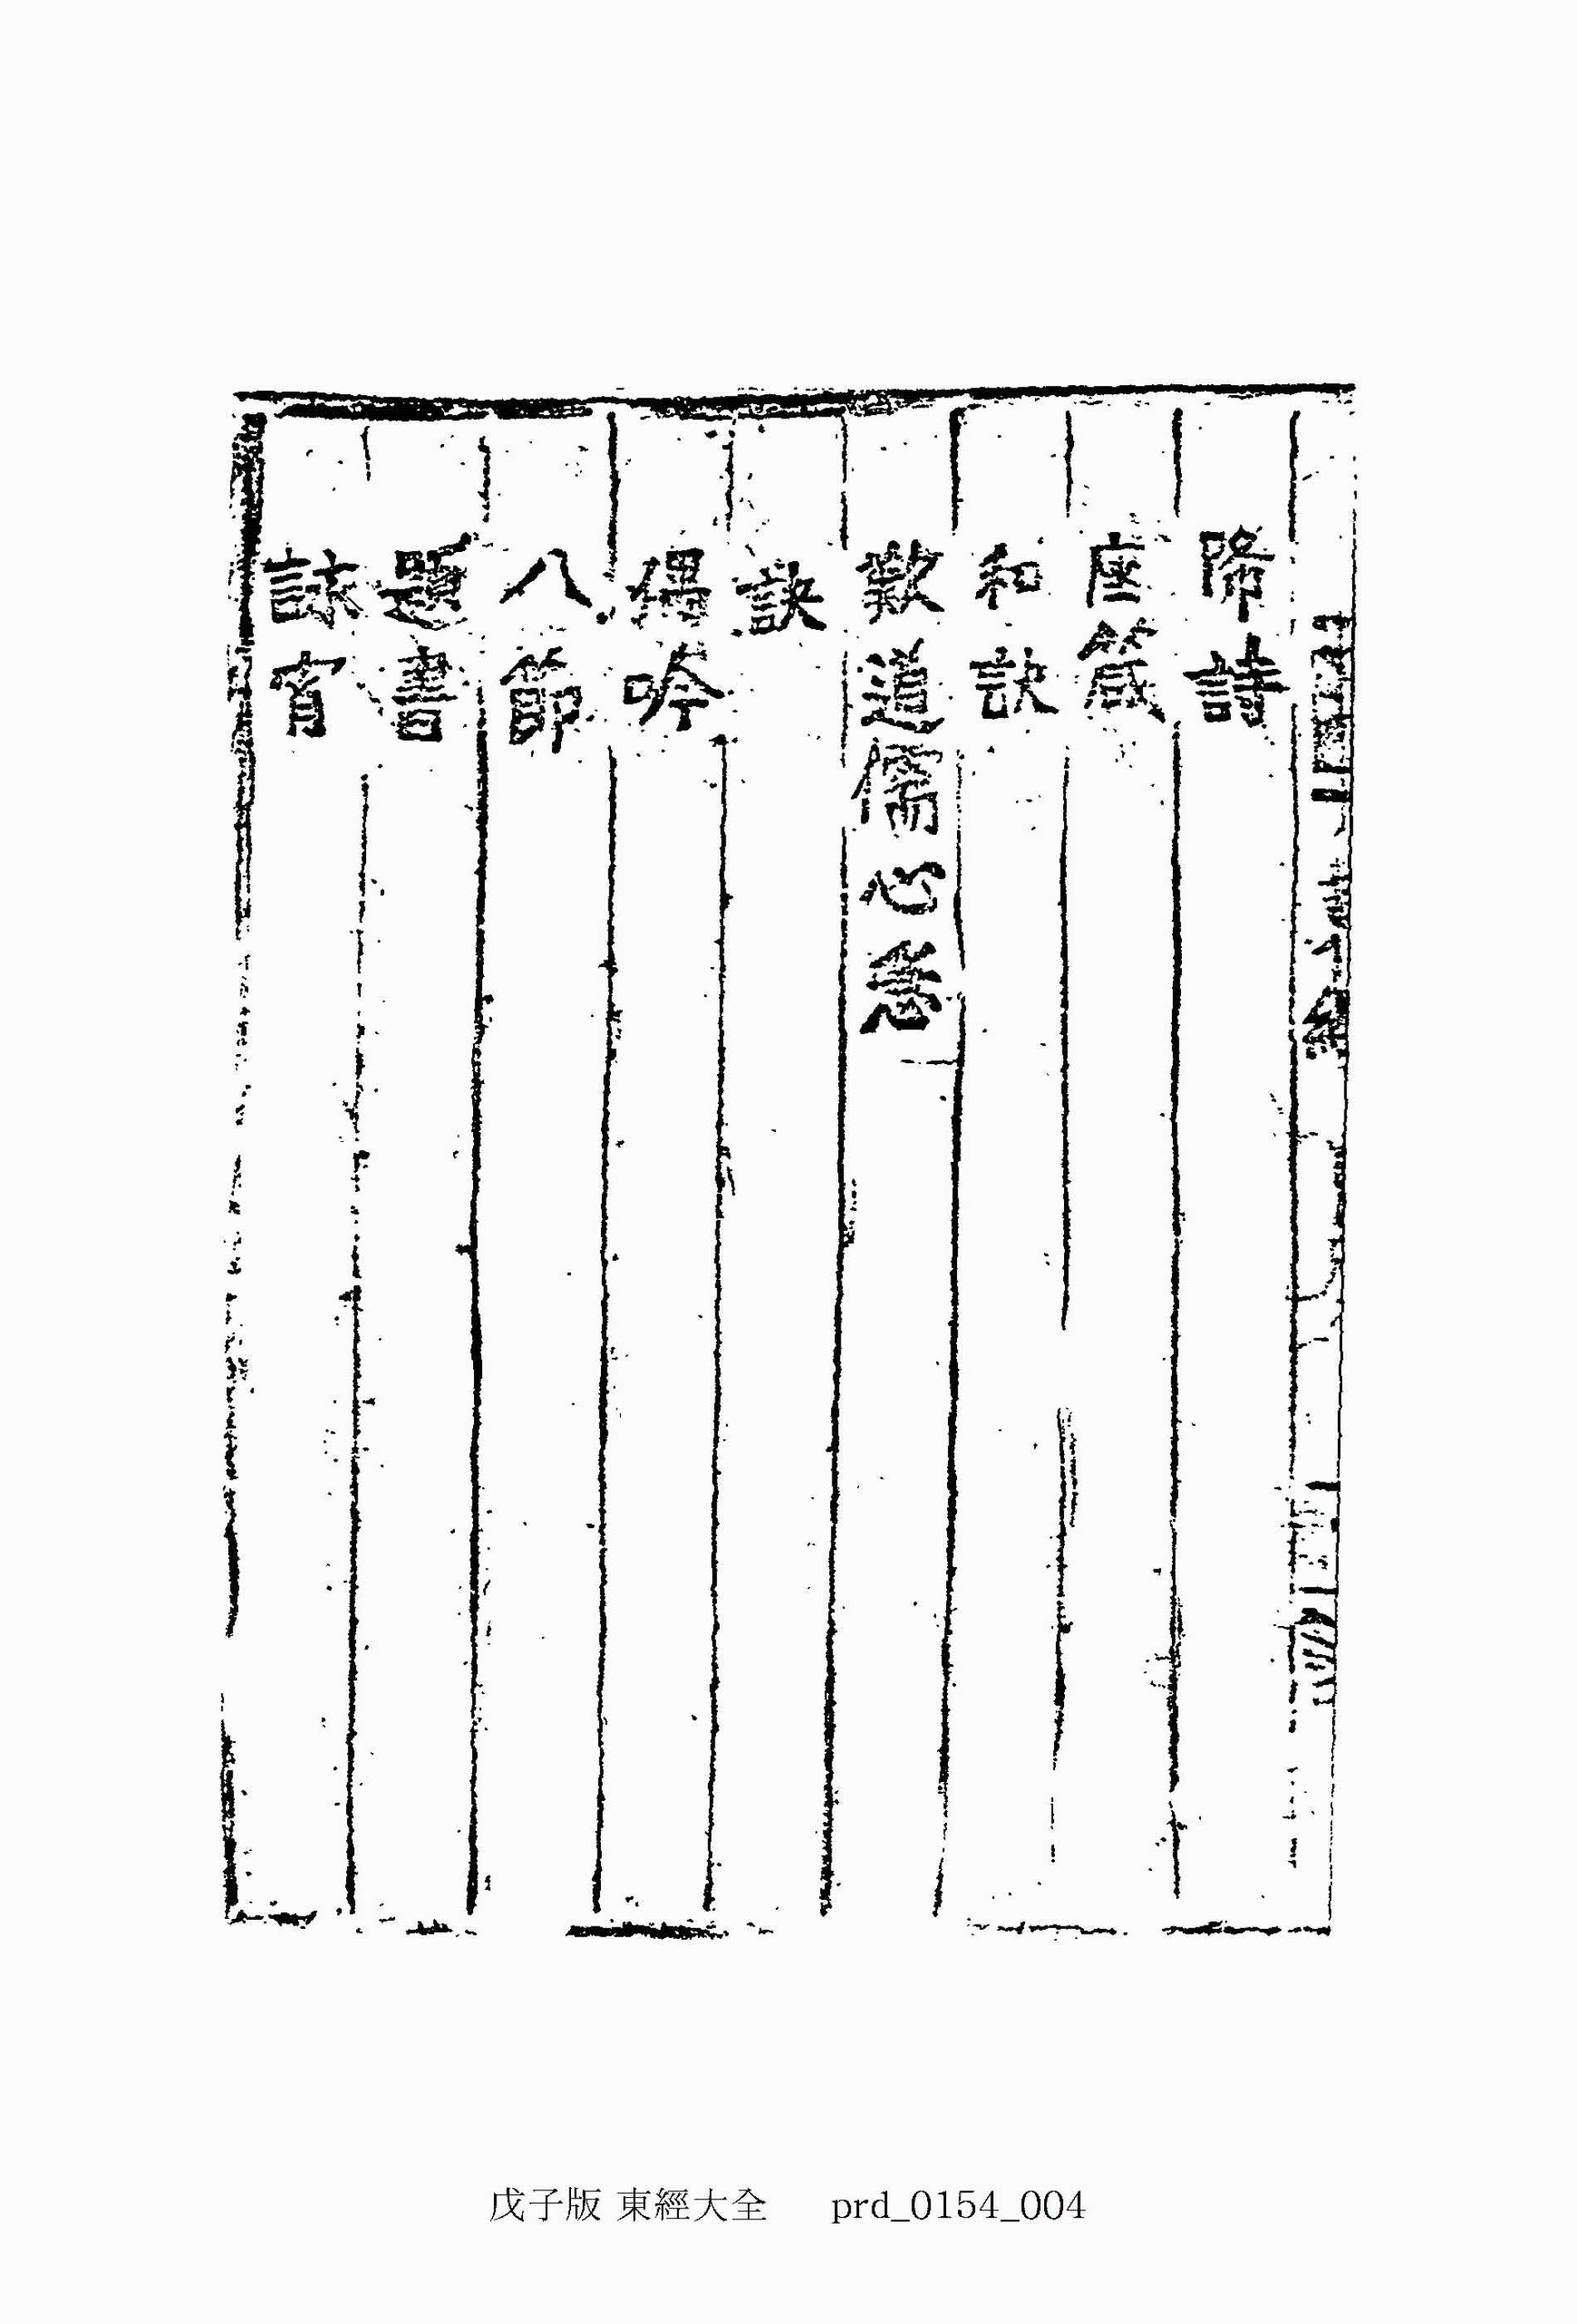 降詩
座箴
和訣
歎道儒心急
訣
偶吟
八節
題書
詠宵
戊子版 東經大全 prd_0154_004